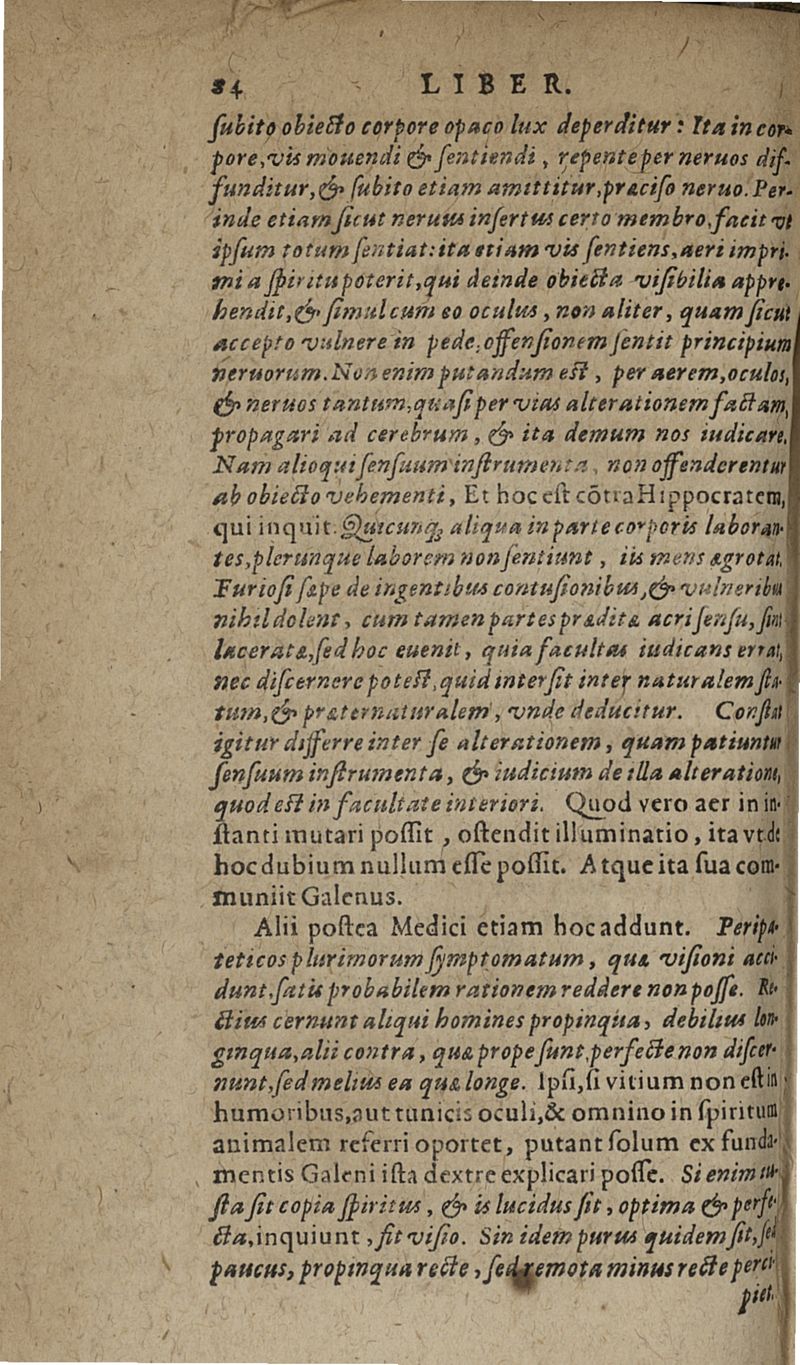 84 LIBER.
ſubito obiecto corpore opaco lux deperditur: Ita in cor-
pore, vis mouendi & ſentiendi, repente per neruos dif-
funditur, & ſubito etiam amittitur, præciſo neruo. Per-
inde etiam ſicut neruus inſertus certo membro, facit vt
ipſum totum ſentiat: ita etiam vis ſentiens, aeri impri-
mi a ſpiritu poterit, qui deinde obiecta viſibilia appre-
hendit, & ſimul cum eo oculus, non aliter, quam ſicut
accepto vulnere in pede, offenſionem ſentit principium
neruorum. Non enim putandum est, per aerem, oculos,
& neruos tantum, quaſi per vias alterationem factam,
propagari ad cerebrum, & ita demum nos iudicare.
Nam alioqui ſenſuum inſtrumenta, non offenderentur
ab obiecto vehementi, Et hoc eſt cõtra Hippocratem,
qui inquit. Quicunq; aliqua in parte corporis laboran-
tes, plerunque laborem non ſentiunt, iis mens ægrotat.
Furioſi ſæpe de ingentibus contuſionibus, & vulneribus
nihil dolent, cum tamen partes præditæ acri ſenſu, ſint
laceratæ, ſed hoc euenit, quia facultas iudicans errat,
nec diſcernere potest, quid interſit inter naturalem ſta-
tum, & præternaturalem, vnde deducitur. Conſtat
igitur differre inter ſe alterationem, quam patiuntur
ſenſuum inſtrumenta, & iudicium de illa alteratione,
quod est in facultate interiori. Quod vero aer in in-
ſtanti mutari poſſit, oſtendit illuminatio, ita vt de
hoc dubium nullum eſſe poſſit. Atque ita ſua com-
muniit Galenus.
Alii poſtea Medici etiam hoc addunt. Peripa-
teticos plurimorum ſymptomatum, quæ viſioni acci-
dunt, ſatis probabilem rationem reddere non poſſe. Re-
ctius cernunt aliqui homines propinqua, debilius lon-
ginqua, alii contra, quæ prope ſunt, perfecte non diſcer-
nunt, ſed melius ea quæ longe. Ipſi, ſi vitium non eſt in
humoribus, aut tunicis oculi, & omnino in ſpiritum
animalem referri oportet, putant ſolum ex funda-
mentis Galeni iſta dextre explicari poſſe. Si enim iu-
ſta ſit copia ſpiritus, & is lucidus ſit, optima & perfe-
cta, inquiunt, fit viſio. Sin idem purus quidem ſit, ſed
paucus, propinqua recte, ſed remota minus recte perci-
piet.